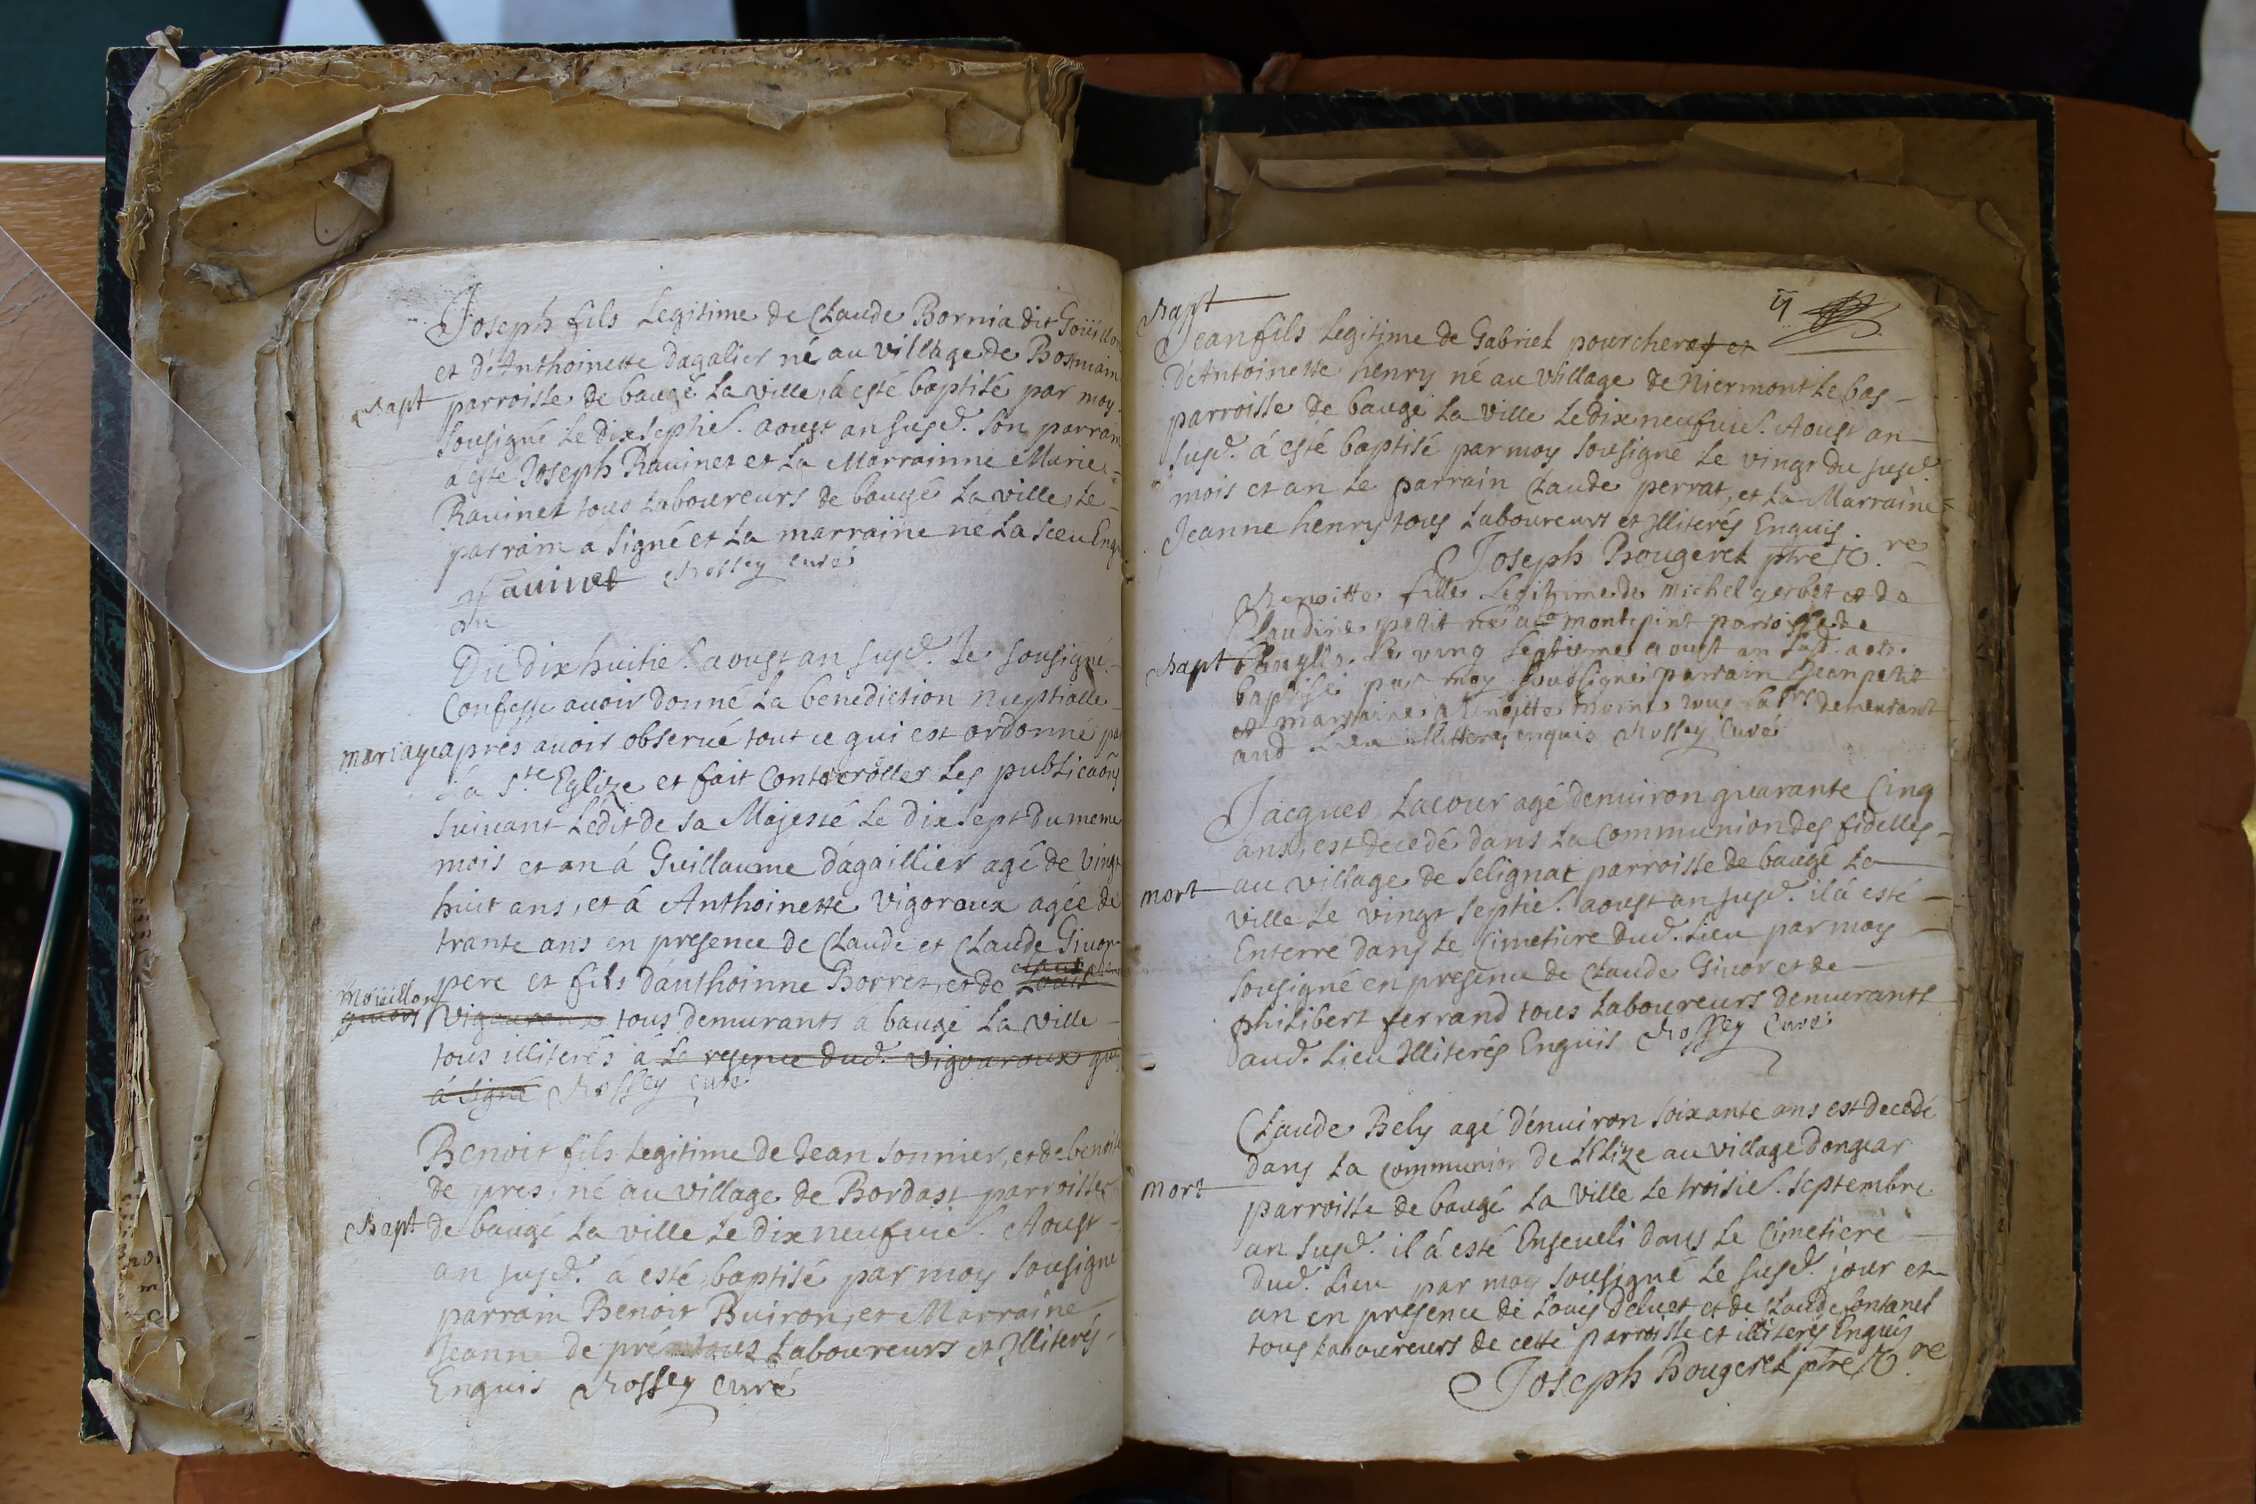 Joseph fils Legitime de Claude Bornia dit Goüillon
et d'Anthoinette Dagalier né au village de Bosmain
Bapt
parroisse de baugé La ville, à esté baptisé par moy
sousigné Le dixseptie. aoust an susd. Son parrain
a esté Joseph Rauinet et La Marrainne Marie
Rauinet tous Laboureurs de baugé La ville, Le
parrain a signé et La marraine ne La sceu Enq
Rauinet Rossey curé
Du Dixhuitie. aoust an susd. Je sousigné
Confesse auoir donné La benediction nuptialle
mariage
apres auoir obserué tout ce qui est ordonné par
La Ste Eglize et fait Controroller Les publicaons
suiuant L'édit de sa Majesté Le dixsept du meme
mois et an á Guillaume dágaillier agé de vingt
huit ans, et á Anthoinette Vigoroux agée de
trante ans en presence de Claude et Claude Giuor
pere et fils d'anthoinne Borret, et de Louis
mouillon
Vigouroux tous demurants a baugé La ville
tous illiterés á Le reserue dud. Vigouroux qui
á signé Rossey curé
Benoit fils Legitime de Jean sonnier, et de benoite
de pres, né au village de Bordast parroisse
Bapt
de baugé La ville Le dixneufuie. Aoust
an susd. a esté baptisé par moy sousigné
parrain Benoit Buiron, et Marraine
Jeanne de pré tous Laboureurs et Illiterés
Enquis Rossey curé
Bapt
Jean fils Legitime de Gabriel pourcherot et
D'Antoinette henry né au village de Niermont Le bas
parroisse de baugé La ville Le dixneufuie. Aoust an
susd. á esté baptisé par moy sousigné Le vingt du susd.
mois et an Le parrain Claude perrat, et La Marraine
Jeanne henry tous Laboureurs et Illiterés Enquis
Joseph Bougeret ptre
Benoitte fille Legitime de michel gerbet et de
Claudine petit née a montepint parroisse de
Bapt
Le ving septieme aoust an susd. a ete
baptisé par moy soussigné parrain Jean petit
et marraine Benoitte tous Labrs demeurant
aud Lieu illiteres enquis Rossey Curé
Jacques Lacour agé denuiron quarante Cinq
ans, est decedé dans La communion des fidelles
au village de Selignat parroisse de baugé La
mort
ville Le vingt septie. aoust an susd. il á esté
Enterré dans Le Cimetiere dud. Lieu par moy
sousigné en presence de Claude Giuor et de
philibert ferrand tous Laboureurs demurants
aud. Lieu Illiterés Enquis Rossey Curé
Claude Bely agé d'enuiron soixante ans est decedé
dans La communion de L'Elize au village dongear
mort
parroisse de baugé La ville Le troisie. septembre
an susd. il á esté Enseueli dans Le Cimetiere
dud. Lieu par moy sousigné Le susd. jour et
an en presence de Louis Deluet et de Claude fontanel
tous Laboureurs de cette parroisse et illiterés Enquis
Joseph Bougeret ptre